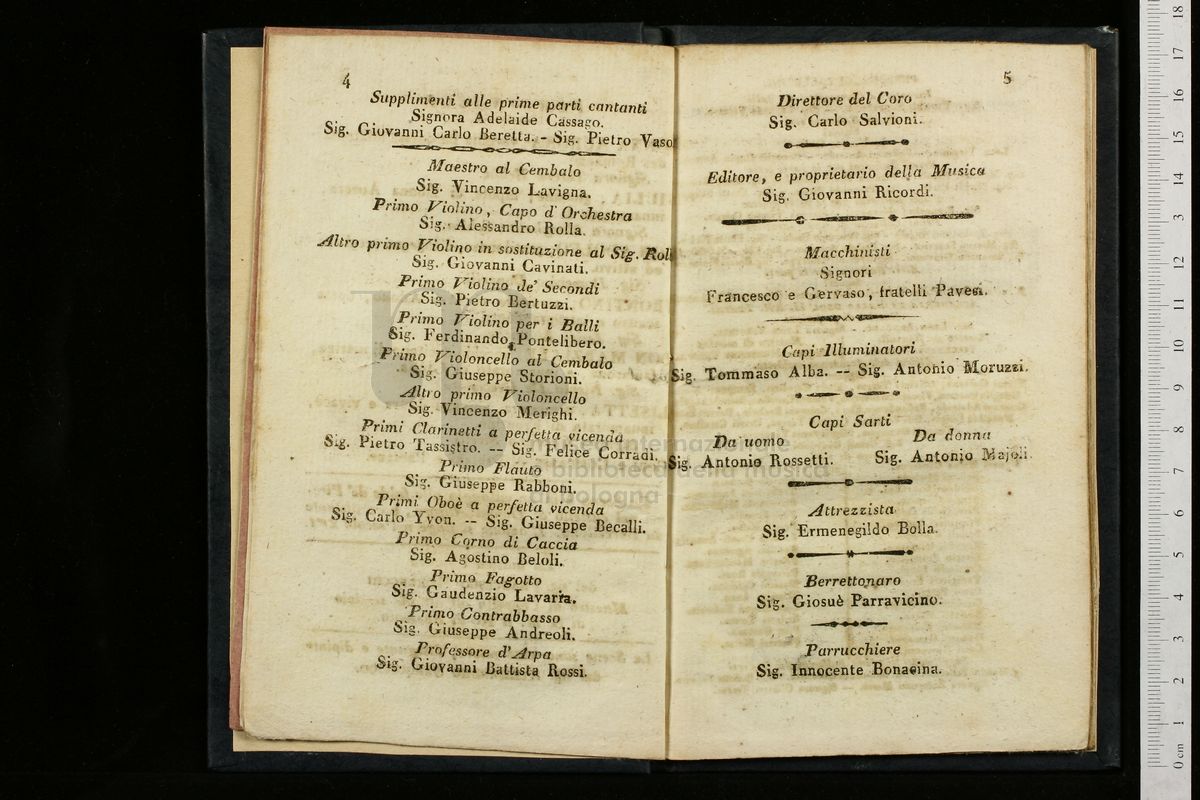 4
Supplimenti alle prime parti cantanti
Signora Adelaide Cassago.
Sig. Giovanni Carlo Beretta. - Sig. Pietro Vasol
Maestro al Cembalo
Sig. Vincenzo Lavigna.
Primo Violino, Capo d' Orchestra
Sig. Alessandro Rolla.
Altro primo Violino in sostituzione al Sig. Roll
Sig. Giovanni Cavinati.
Primo Violino de' Secondi
Sig. Pietro Bertuzzi.
Primo Violino per i Balli
Sig. Ferdinando Pontelibero.
Primo Violoncello al Cembalo
Sig. Giuseppe Storioni.
Altro primo Violoncello
Sig. Vincenzo Merighi.
Primi Clarinetti a perfetta vicenda
Sig. Pietro Tassistro. -- Sig. Felice Corradi.
Primo Flauto
Sig. Giuseppe Rabboni.
Primi Oboè a perfetta vicenda
Sig. Carlo Yvon. -- Sig. Giuseppe Becalli.
Primo Corno di Caccia
Sig. Agostino Beloli.
Primo Fagotto
Sig. Gaudenzio Lavaria.
Primo Contrabbasso
Sig. Giuseppe Andreoli.
Professore d'Arpa
Sig. Giovanni Battista Rossi.
5
Direttore del Coro
Sig. Carlo Salvioni.
Editore, e proprietario della Musica
Sig. Giovanni Ricordi.
Macchinisti
Signori
Francesco e Gervaso, fratelli Pavesi.
Capi Illuminatori
Sig. Tommaso Alba. -- Sig. Antonio Moruzzi.
Capi Sarti
Da uomo Da donna
Sig. Antonio Rossetti. Sig. Antonio Majoli.
Attrezzista
Sig. Ermenegildo Bolla.
Berrettonaro
Sig. Giosuè Parravicino.
Parrucchiere
Sig. Innocente Bonacina.
museo internazionale
biblioteca della musica
di bologna
0 cm 1 2 3 4 5 6 7 8 9 10 11 12 13 14 15 16 17 18